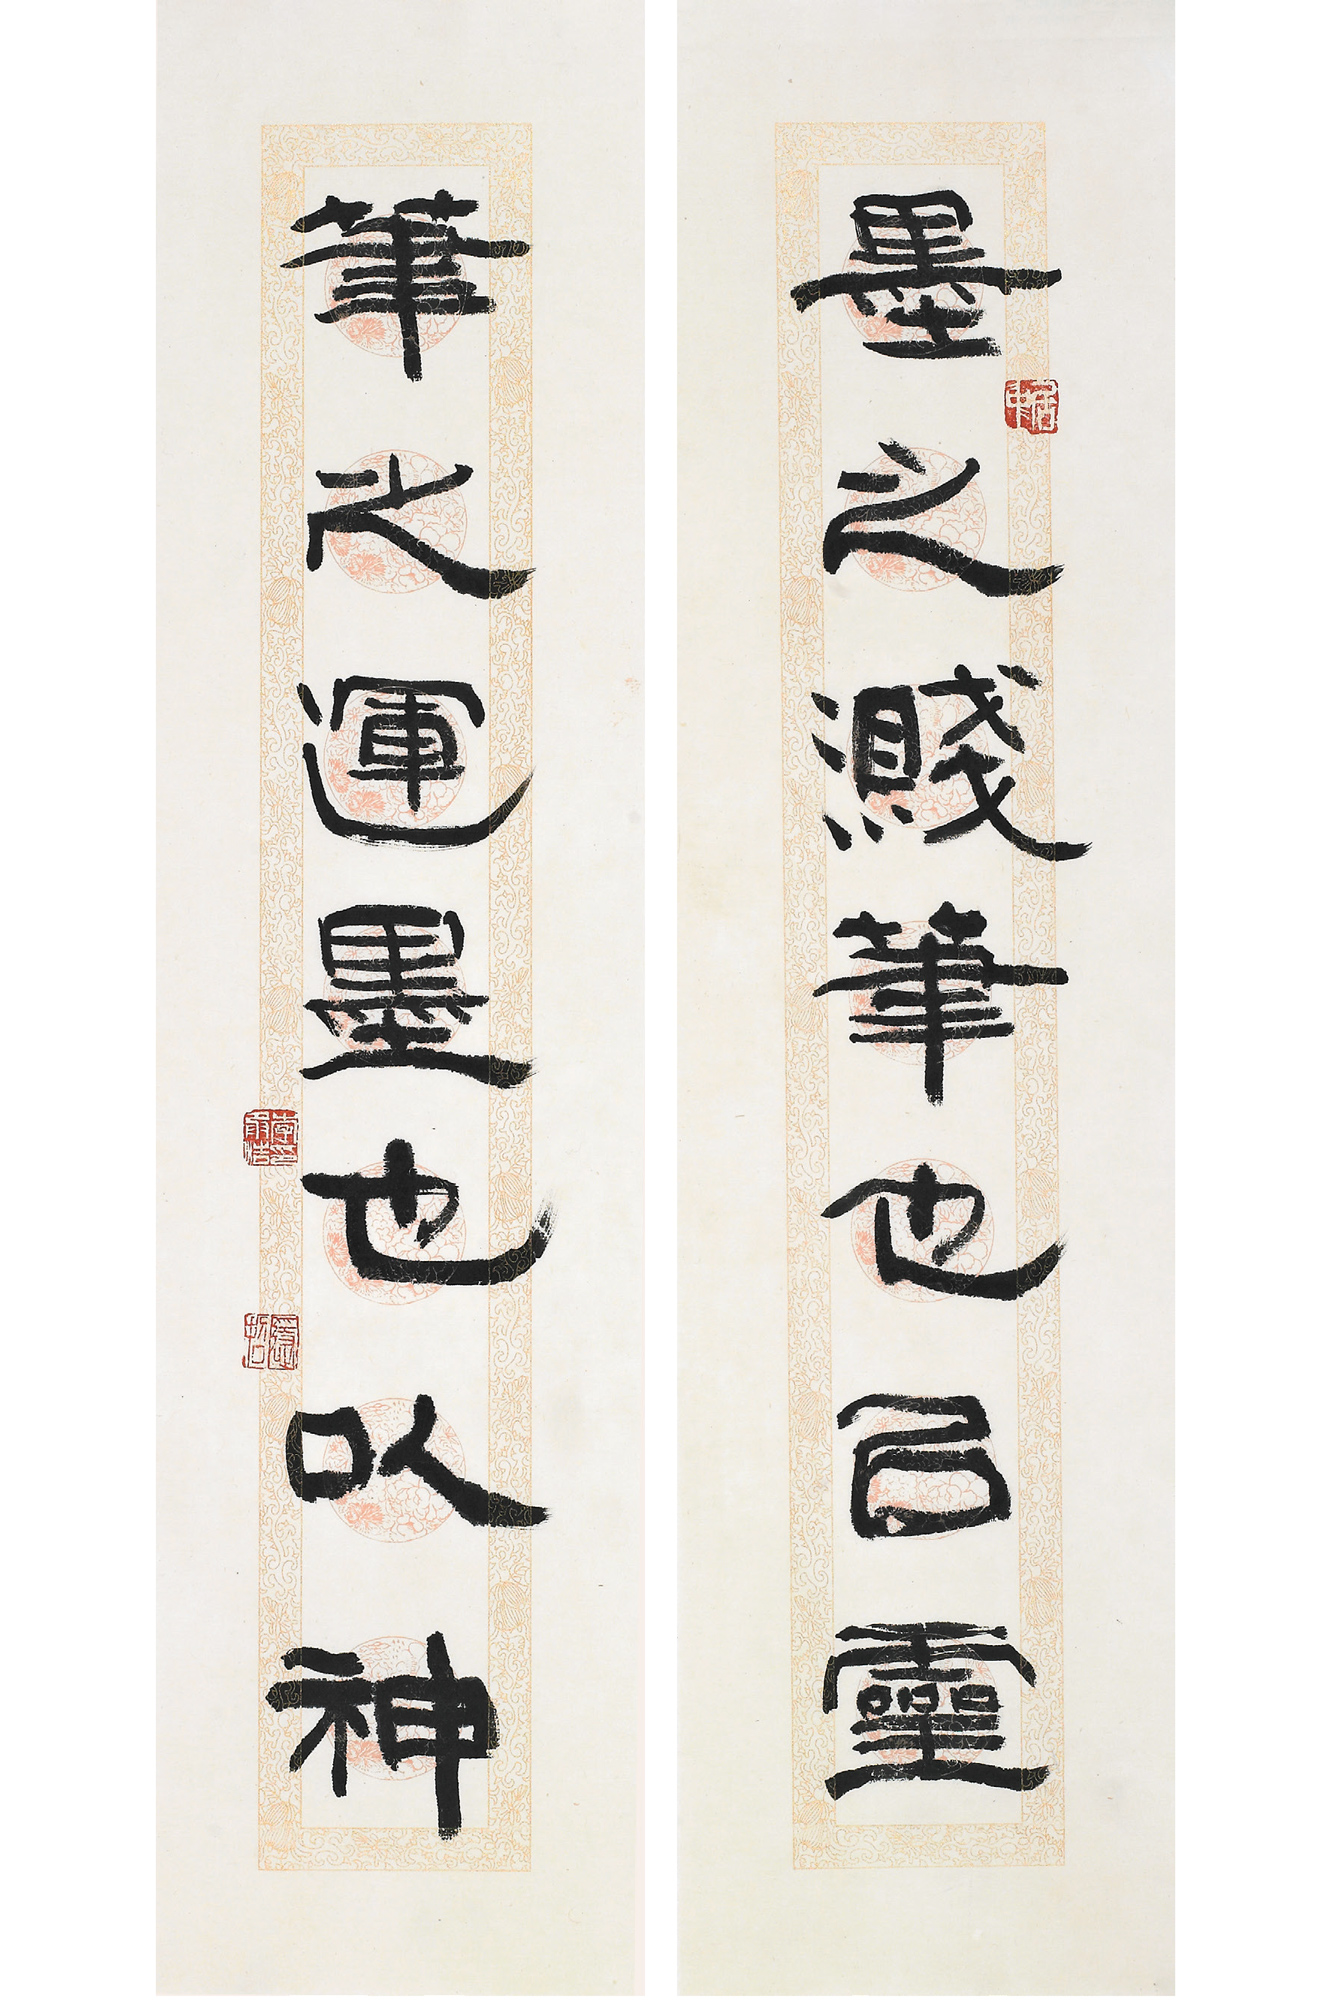 墨之濺筆也以靈
筆之運墨也以神